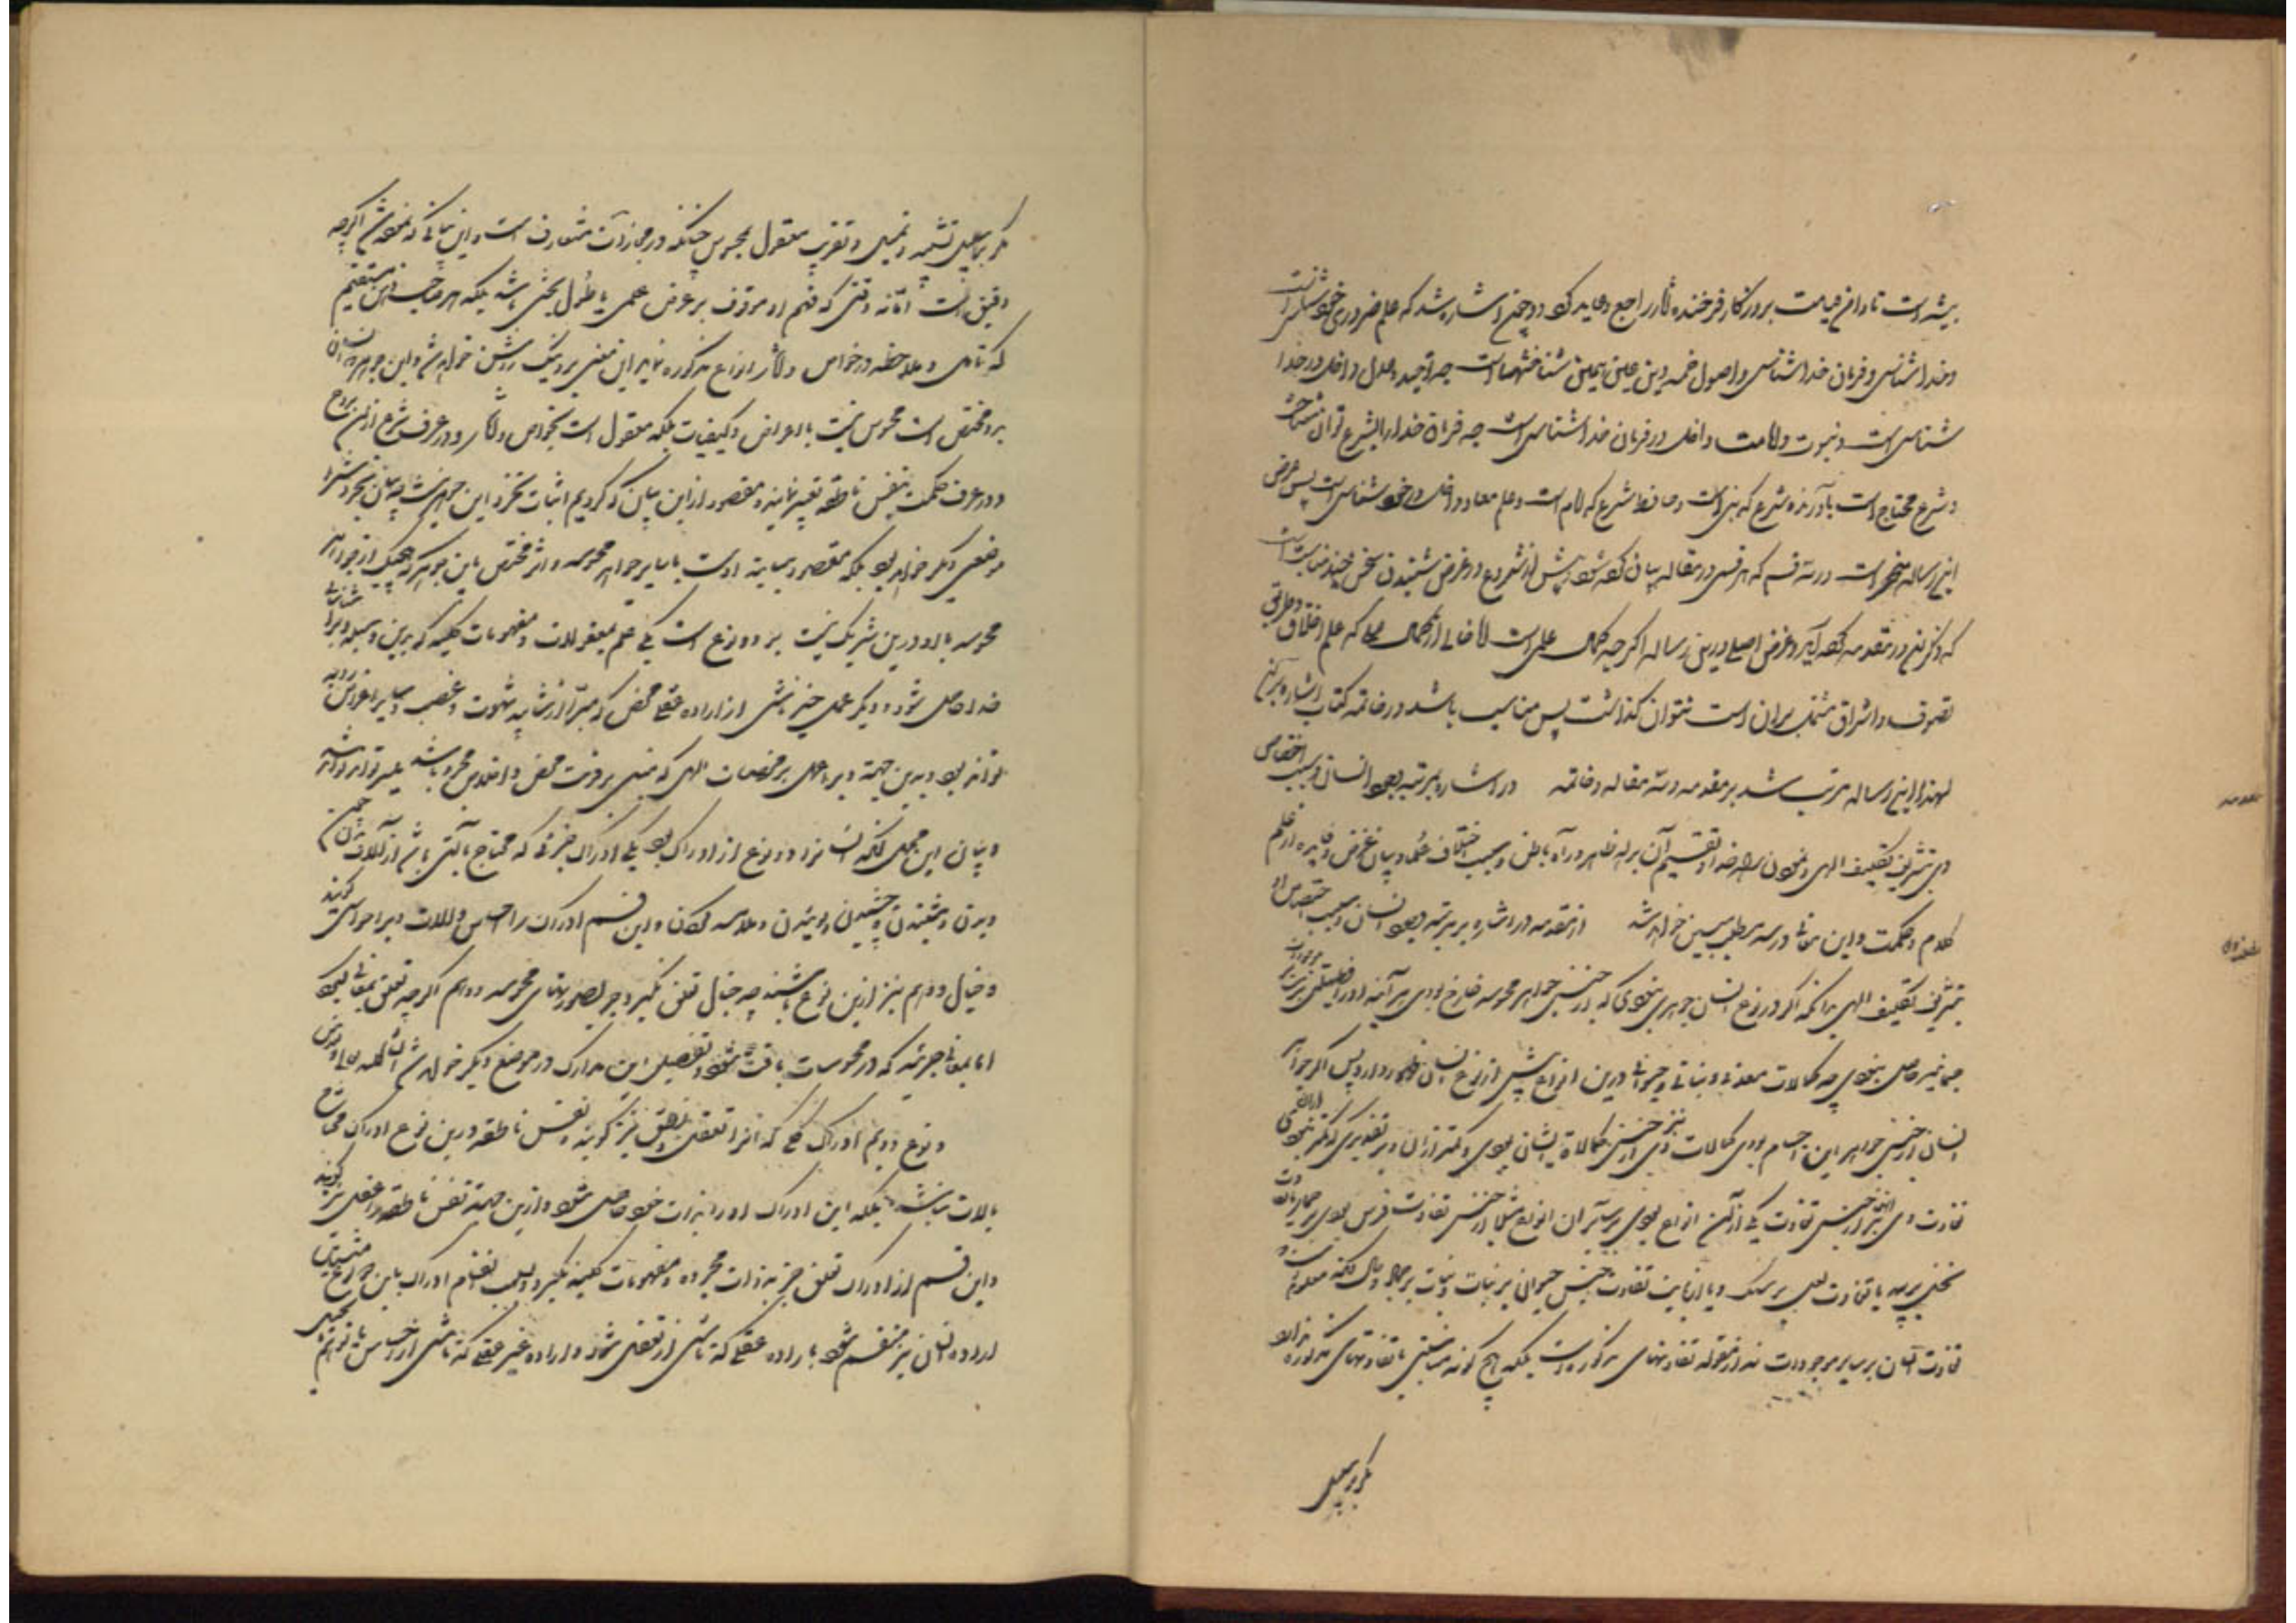 بیشه است تا دامن قیامت بروزگار فرخنده آثار راجع و عاید گردد و چون دانسته شد که علم ضروری خودشناسی است
و خداشناسی و فرمان خداشناسی و اصول خمسه دین بعینه همین شناختهاست چه توحید و عدل داخل در خدا
شناسی است و نبوت و امامت داخل در فرمان خداشناسی است چه فرمان خدا را بشرع توان شناخت
و شرع محتاج است بآورنده شرع که نبی است و حافظ شرع که امام است و علم معاد داخل در خودشناسی است پس غرض
این رساله منحصر است در سه قسم که هر قسمی در مقاله بیان کرده شود و پیش از شروع در غرض شنیدن سخنی چند مناسب است
که ذکر آن در مقدمه کرده آید و غرض اصلی درین رساله اگرچه کمال علمی است اما خالی از کمال عملی که علم اخلاق و طریق
تصوف و اشراق مشتمل بر آن است نتوان گذاشت پس مناسب باشد در خاتمه کتاب اشاره بر آن
لهذا این رساله مرتب شد بر مقدمه و سه مقاله و خاتمه در اشاره بمرتبه وجود انسان و سبب اختصاص
وی بتشریف تکلیف الهی و نمودن راه خدا و تقسیم آن براه ظاهر و راه باطن و سبب اختلاف علما و بیان غرض و فایده از علم
کلام و حکمت و این معانی در سه مطلب مبین خواهد شد از مقدمه در اشاره بر مرتبه وجود انسان و سبب اختصاص او
بتشریف تکلیف الهی بدانکه اگر در نوع انسان جوهری نبودی که از جنس جواهر محسوسه خارج بودی هر آینه او را فضیلتی بر
چندان حاصل نبودی چه کمالات معدنی و نباتی و حیوانی درین انواع پیش از نوع انسان ظهور دارد پس اگر جواهر
انسان از جنس جواهر این اجسام بودی کمالات وی نیز از جنس کمالات ایشان بودی و کمتر از آن و بر تقدیری که کمتر نبودی
تفاوت وی نیز از جنس تفاوت یکی از آن انواع بودی بر سایر آن انواع مثلا از جنس تفاوت فرس بودی بر حمار یا تفاوت
نخل بر بید یا تفاوت لعل بر سنگ و یا از بابت تفاوت جنس حیوانی بر نبات و نبات بر جماد و حال آنکه معلوم است که
تفاوت انسان بر سایر موجودات نه از مقوله تفاوتهای مذکوره است بلکه هیچ گونه مناسبتی با تفاوتهای مذکوره ندارد
مگر بر سبیل
مگر بر سبیل تشبیه و تمثیل و تقریب معقول بمحسوس چنانکه در مجازات متعارف است و این بیانی که نموده شد اگرچه
دقیق است اما نه دقتی که فهم او موقوف بر غرض علمی یا طول بحثی باشد بلکه هر صاحب ذهن مستقیم
که تاملی و ملاحظه در خواص و آثار انواع مذکوره نماید این معنی بر وی نیک روشن خواهد شد و این جوهر که انسان
بدو مختص است محسوس نیست باعراض و کیفیات بلکه معقول است بخواص و آثار و در عرف شرع از آن بروح
و در عرف حکمت بنفس ناطقه تعبیر نمایند و مقصود ازین بیان که کردیم اثبات تجرد این جوهر نیست چه بیان تجرد نفس را
موضعی دیگر خواهد بود بلکه مقصود مباینت اوست با سایر جواهر محسوسه و اثر مختص باین جوهر که هیچیک از جواهر
محسوسه با او درین شریک نیست بر دو نوع است یکی علم بمعقولات و مفهومات کلیه که بدین وسیله ویرا شناسائی
خدا حاصل شود و دیگر عملی چند ناشی از اراده عقلی محض که مبرا از شائبه شهوت و غضب و سایر اغراض ردیه
تواند بود و بدین جهت ویرا عمل بر مرضیات الهی که مبنی بر قربت محض و اخلاص مجرد باشد میسر تواند شد
و بیان این مجمل آنکه انسان را دو نوع از ادراک بود یکی ادراک جزئی که محتاج بآلتی باشد از آلات بدن چون
دیدن و شنیدن و چشیدن و بوئیدن و ملامسه کردن و این قسم ادراک را احساس و آلات ویرا حواس گویند
و خیال و وهم نیز ازین نوع باشند چه خیال تعلق نگیرد جز بصورتهای محسوسه و وهم اگرچه تعلق بمعانی گیرد
اما بمعانی جزئیه که در محسوسات یافت شود و تفصیل این مدارک در موضع دیگر خواهد شد انشاء الله تعالی
و نوع دویم ادراک کلی که آنرا تعقل و نطق نیز گویند و نفس ناطقه درین نوع ادراک محتاج
بآلات نباشد بلکه این ادراک او را بذات خود حاصل شود و ازین جهة نفس ناطقه را عقل نیز گویند
و این قسم از ادراک تعلق جز بذوات مجرده و مفهومات کلیه نگیرد و بسبب انقسام ادراک باین دو نوع
اراده انسان نیز منقسم شود باراده عقلی که ناشی از تعقل شود و اراده غیر عقلی که ناشی از احساس یا توهم